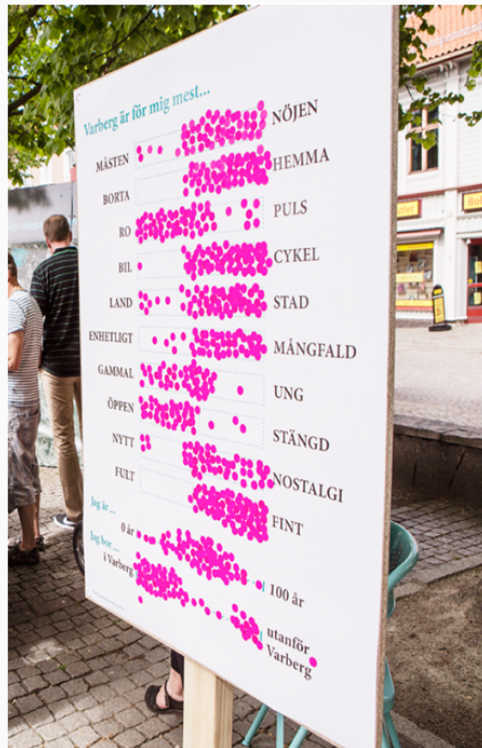 Varberg är för mig mest...
MÅSTEN NÖJEN
BORTA HEMMA
RO PULS
BIL CYKEL
LAND STAD
ENHETLIGT MÅNGFALD
GAMMAL UNG
ÖPPEN STÄNGD
NYTT NOSTALGI
FULT FINT
Jag är...
0 år 100 år
Jag bor...
i Varberg utanför
Varberg